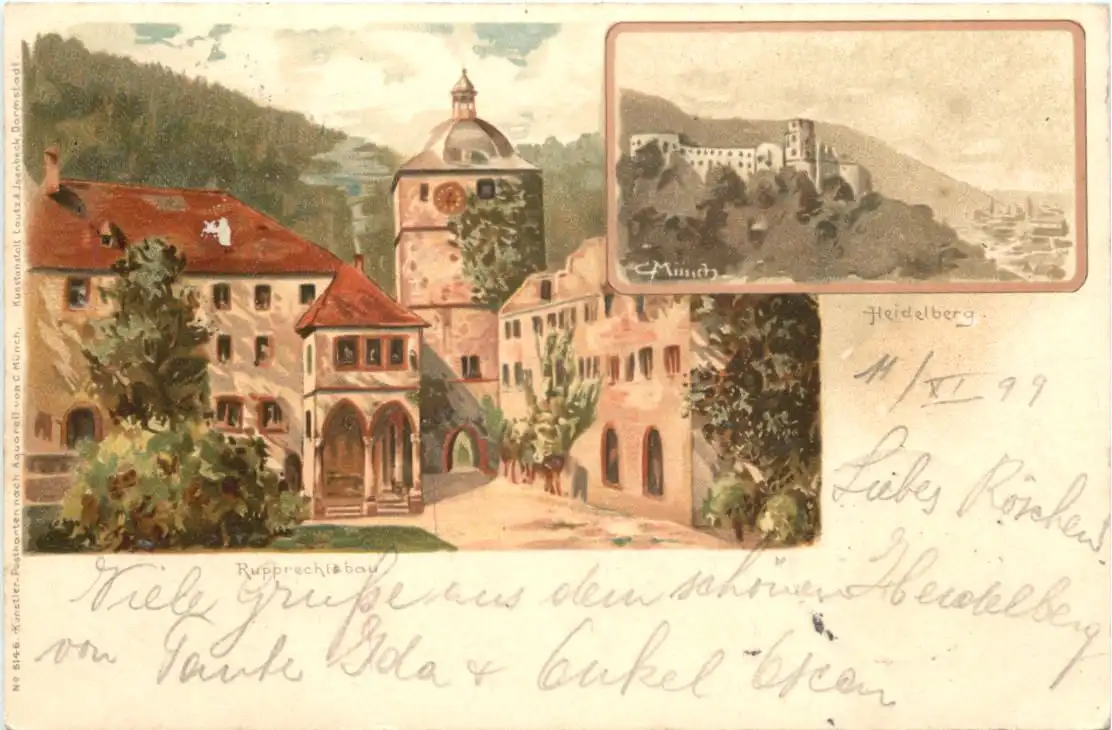 No 5146. Künstler-Postkarten nach Aquarell von C. Münch. Kunstanstalt Lautz & Isenbeck, Darmstadt.
C Münch
Heidelberg.
11/XI 99
Liebes Röschen
Rupprechtsbau
Viele Grüße aus dem schönen Heidelberg
von Tante Ida & Onkel Oscar